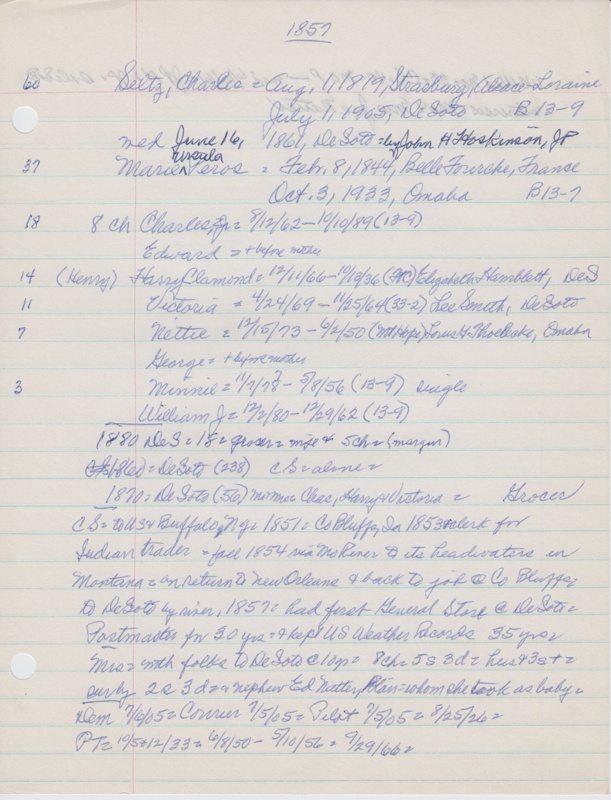 1857
60 Seltz, Charles = Aug, 1, 1819, Strasburg, Alsace-Loraine
July 1, 1905, DeSoto B 13-9
med June 16, 1861, DeSoto = by John H Hoskinson, JP
Ursala
37 Marie Veros = Feb. 8, 1844, Belle Fourche, France
Oct. 3, 1933, Omaha B13-7
18 8 ch Charles, Jr = 8/12/62 - 10/10/89 (13-9)
Edward = + before mother
14 (Henry) Harry Clamond = 12/11/66 - 10/13/36 Elizabeth Hamblett, DeS
11 Victoria = 4/24/69 - 11/25/64 (33-2) Lee Smith, DeSoto
7 Nettie = 12/15/73 - 6/2/50 (Mt Hope) Louis H. Thoelecke, Omaha
George = + before mother
3 Minnie = 11/7/78 - 5/8/56 (13-9) single
William J = 12/2/80 - 12/29/62 (13-9)
1880 DeS = 18 = grocer = wife & 5 ch = (margin)
= DeSoto (238) CS = alone =
1870 = DeSoto (56) Mr Mrs Chas, Harry & Victoria = Grocer
CS = to US & Buffalo, NY = 1851 = Co Bluffs, Ia 1853 & clerk for
Indian trader = fall 1854 via Mo River to its headwaters in
Montana = on return to New Orleans & back to job @ Co Bluffs =
to DeSoto by river, 1857 = had first General Store @ DeSoto =
Postmaster for 30 yrs = & kept US Weather Records 35 yrs =
Mrs = with folks to DeSoto @ 10 yrs = 8 ch = 5s 3d = hus & 3s + =
surv by 2s 3d = a nephew Ed Natter, Blair = whom she took as baby =
Dem 7/6/05 = Courier 7/5/05 = Pilot 7/5/05 = 8/25/26 =
PT = 10/5 & 12/33 = 6/8/50 - 5/10/56 = 9/29/66 =